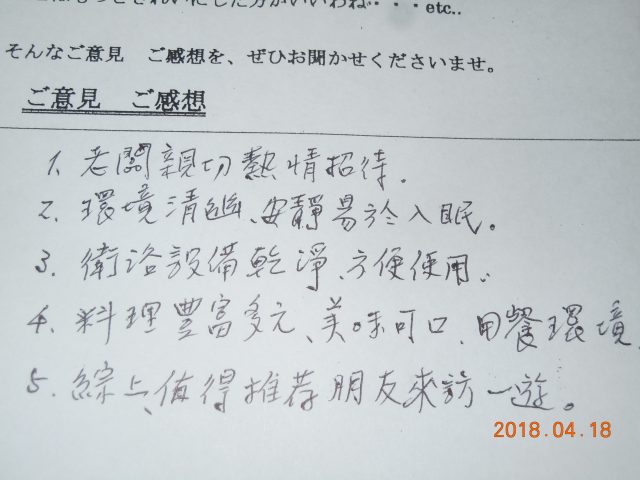 もっときれいにした方がいいわね・・・etc..
そんなご意見　ご感想を、ぜひお聞かせくださいませ。
ご意見　ご感想
1. 老闆親切熱情招待.
2. 環境清幽、安靜易於入眠。
3. 衛浴設備乾淨、方便使用.
4. 料理豐富多元、美味可口、用餐環境
5. 綜上、值得推荐朋友來訪一遊。
2018.04.18